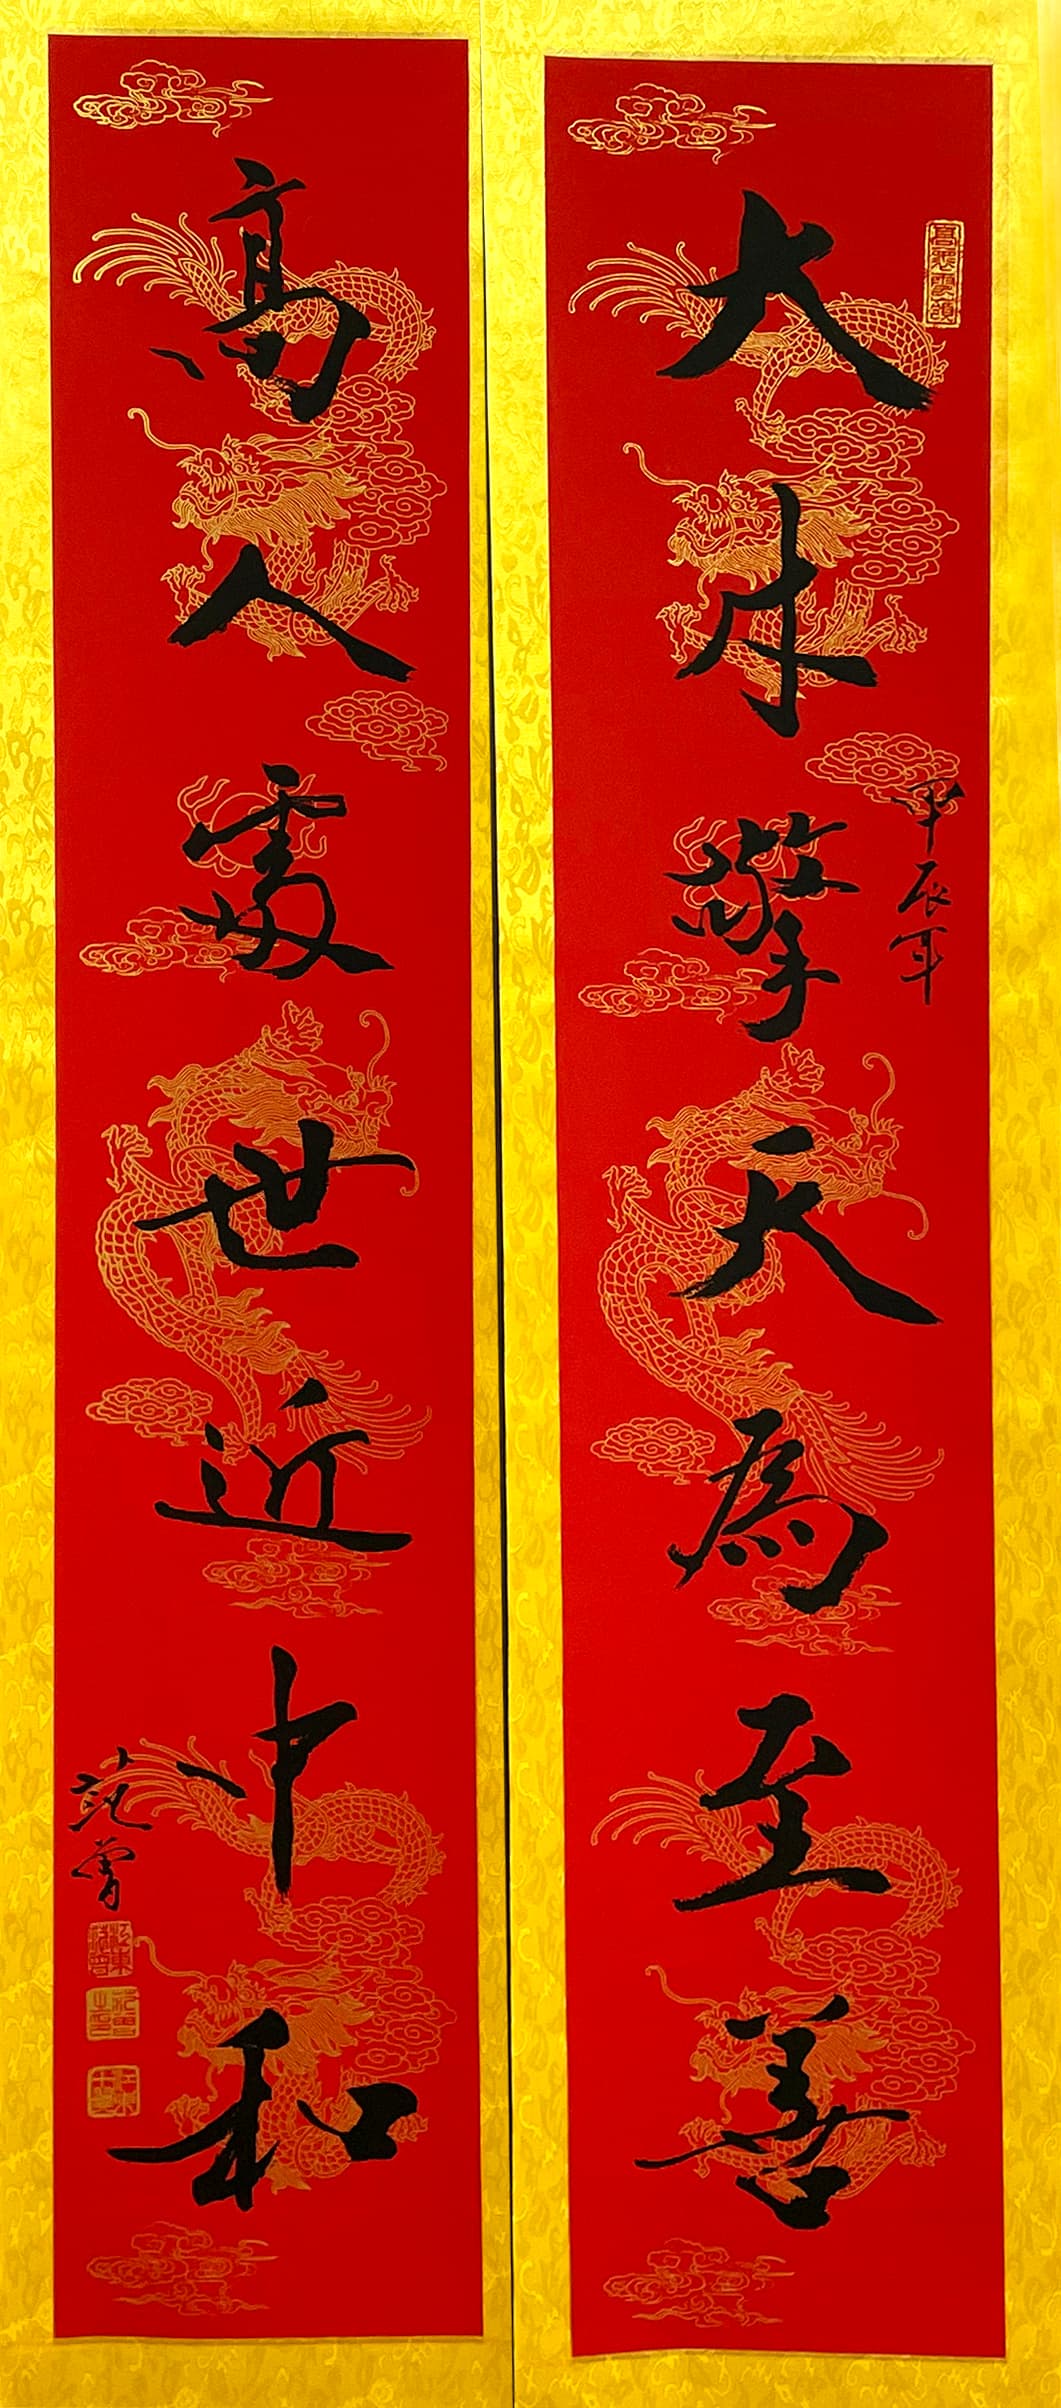 大木擎天為至善
甲辰年
高人處世近中和
范曾